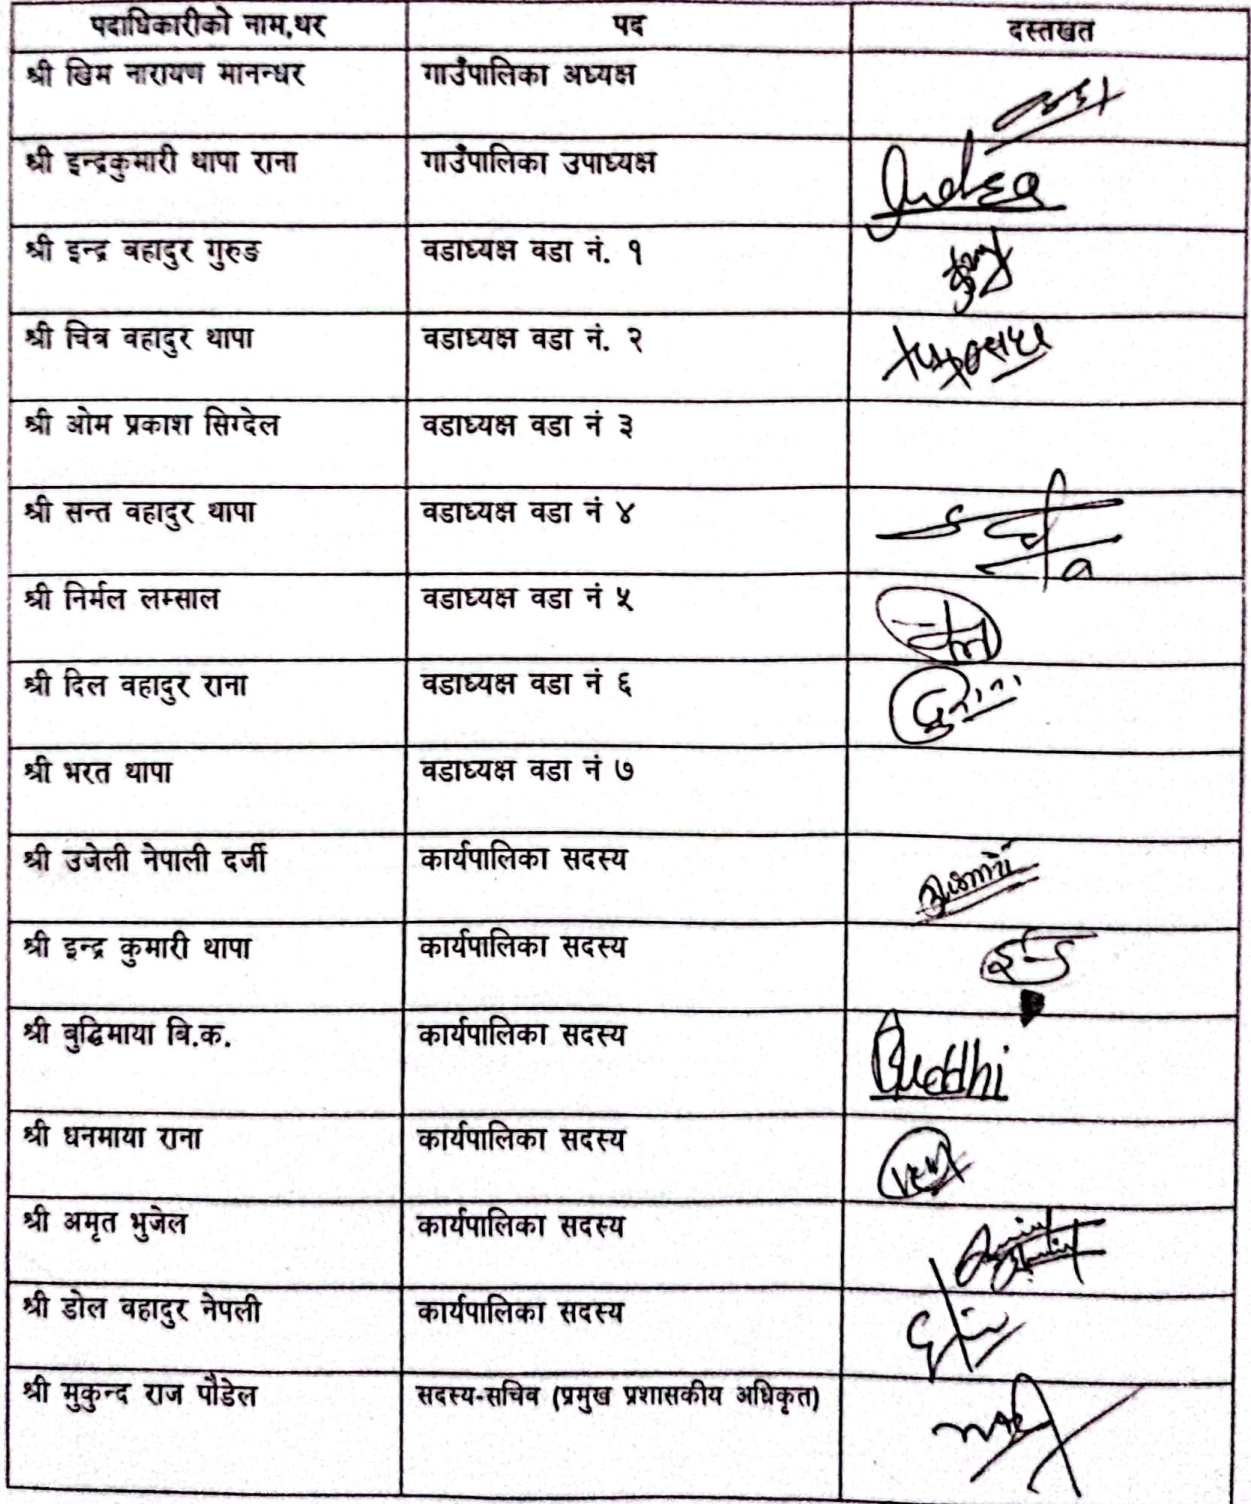 पदाधिकारीको नाम,थर पद दस्तखत
श्री खिम नारायण मानन्धर गाउँपालिका अध्यक्ष
श्री इन्द्रकुमारी थापा राना गाउँपालिका उपाध्यक्ष
श्री इन्द्र वहादुर गुरुङ वडाध्यक्ष वडा नं. १
श्री चित्र वहादुर थापा वडाध्यक्ष वडा नं. २
श्री ओम प्रकाश सिग्देल वडाध्यक्ष वडा नं ३
श्री सन्त वहादुर थापा वडाध्यक्ष वडा नं ४
श्री निर्मल लम्साल वडाध्यक्ष वडा नं ५
श्री दिल वहादुर राना वडाध्यक्ष वडा नं ६
श्री भरत थापा वडाध्यक्ष वडा नं ७
श्री उजेली नेपाली दर्जी कार्यपालिका सदस्य
श्री इन्द्र कुमारी थापा कार्यपालिका सदस्य
श्री बुद्धिमाया बि.क. कार्यपालिका सदस्य Buddhi
श्री धनमाया राना कार्यपालिका सदस्य
श्री अमृत भुजेल कार्यपालिका सदस्य
श्री डोल वहादुर नेपली कार्यपालिका सदस्य
श्री मुकुन्द राज पौडेल सदस्य-सचिव (प्रमुख प्रशासकीय अधिकृत)